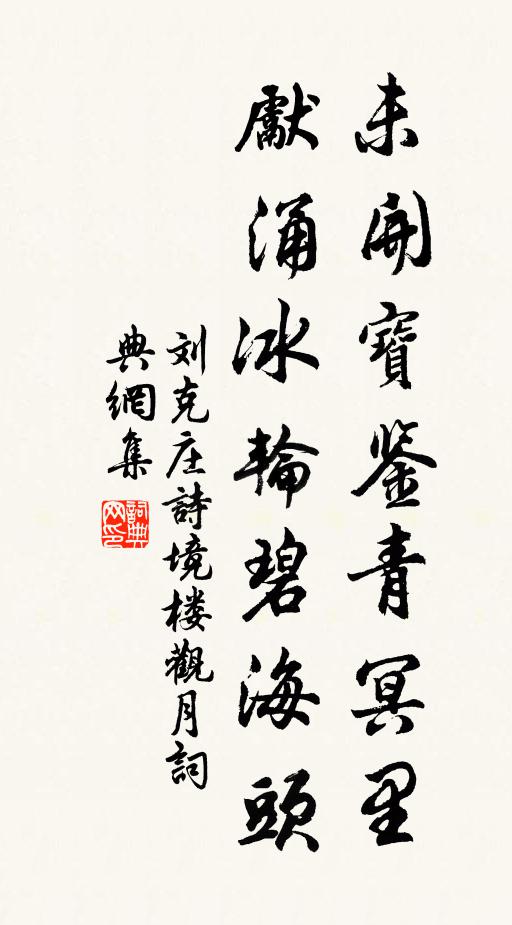 未開寶鑒青冥里
獻涌冰輪碧海頭
刘克庄詩境楼觀月詞
典網集
詞典网印